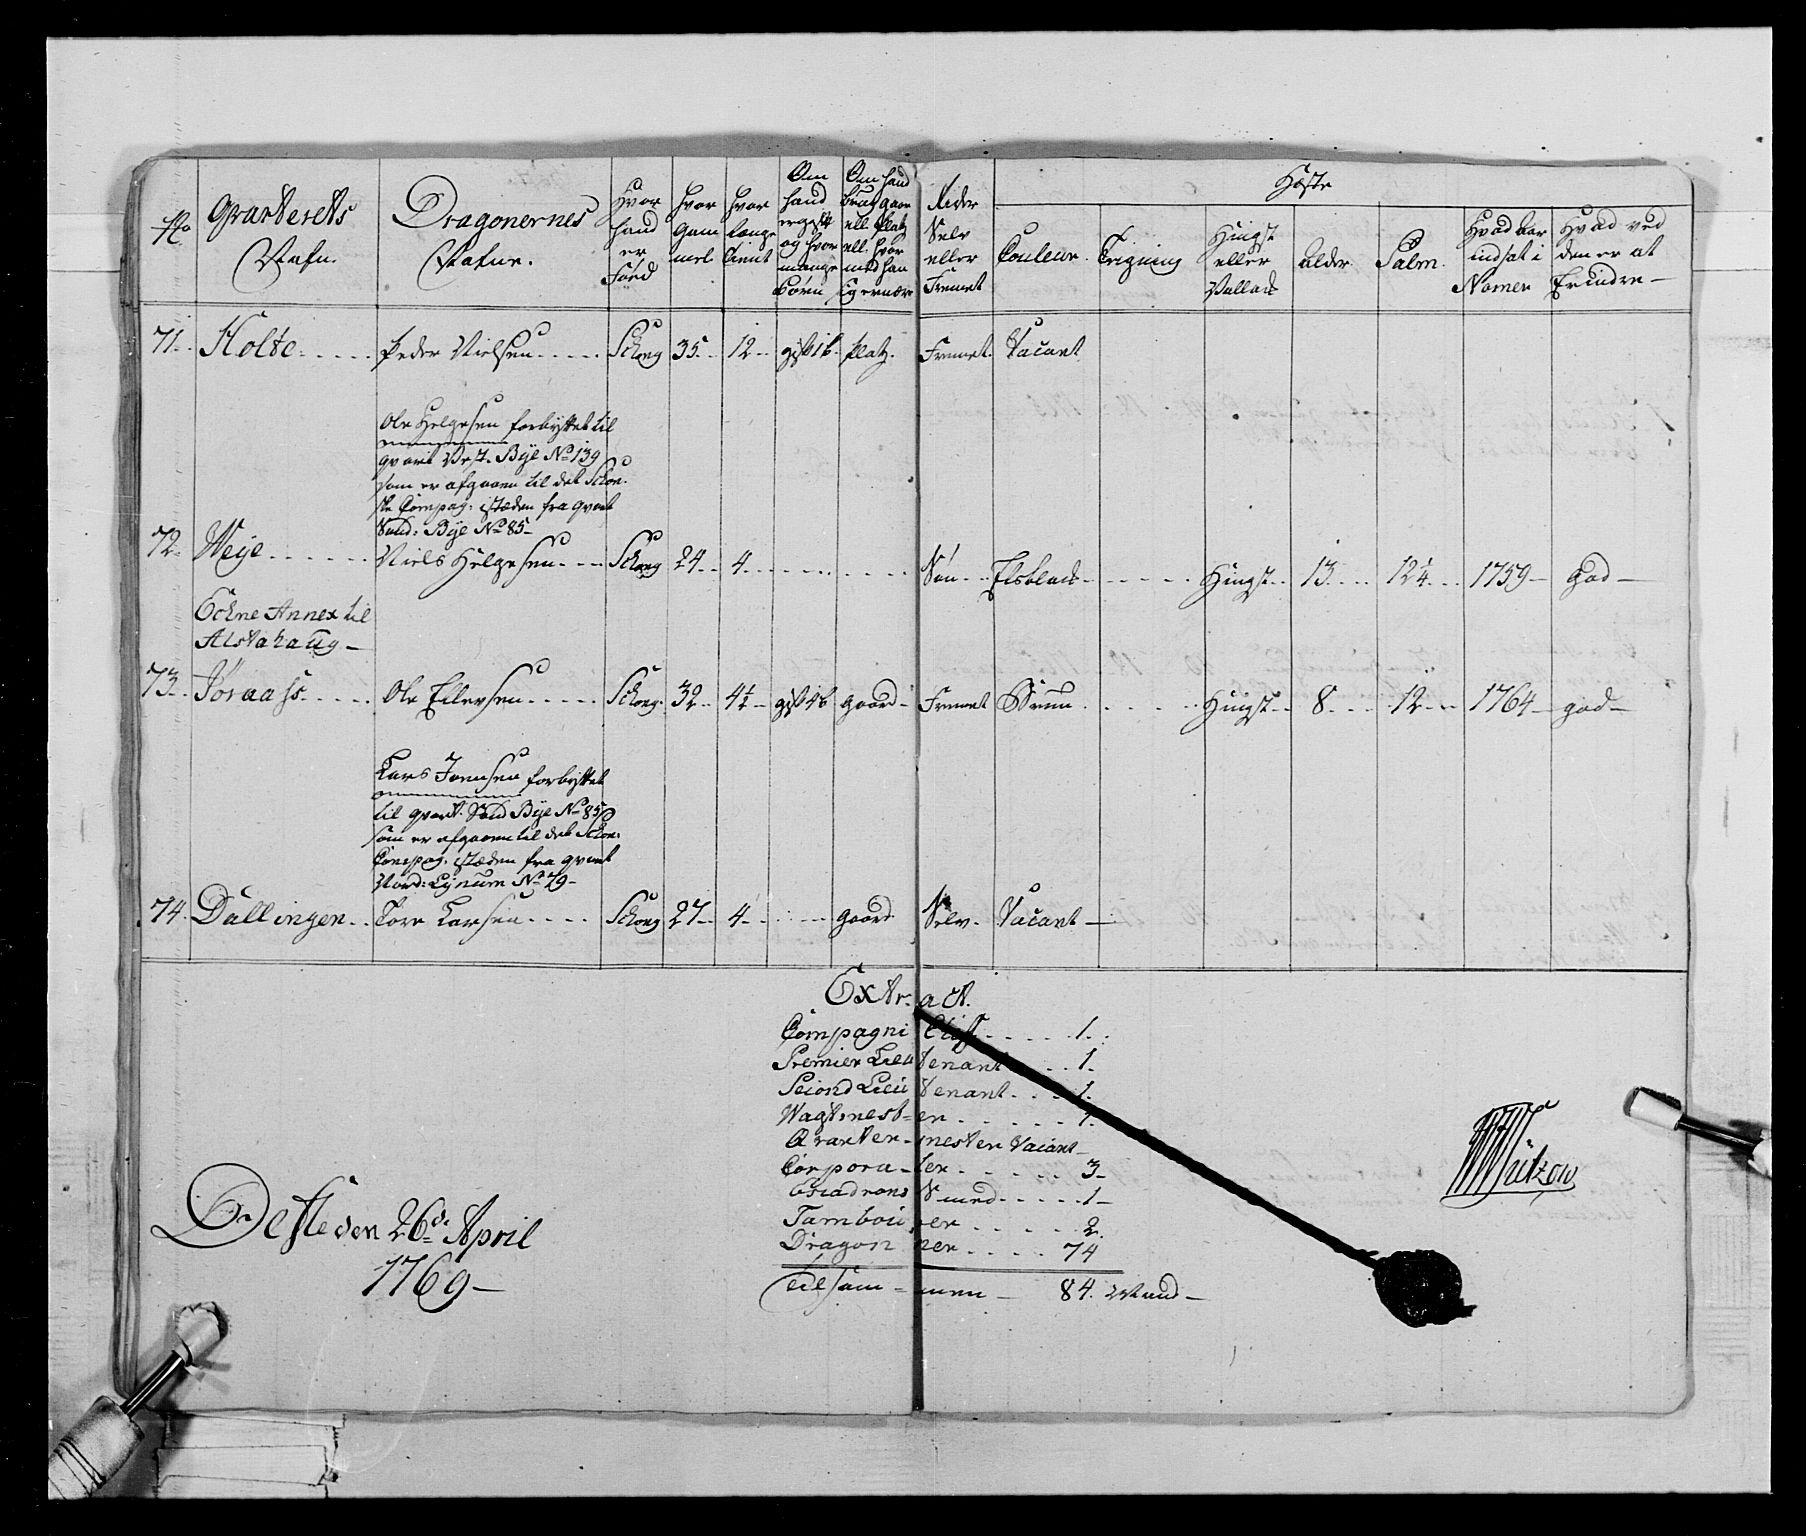 No
Qvarterets Nafn.
Dragonernes Nafne.
Hvor hand er Föed
Hvor Gam mel
Hvor længe Tient
Om hand er gift og hvor mange Börn
Om hand Brug gaard ell. Platz ell. hvor med han sig ernære
Rider Selv eller Fremet
Hæste
Couleur.
Teigning
Hingst eller Vallack
alder
Palm.
Hvad aar indsat i Nomer
Hvad ved den er at Erindre
71. Holte Peder Nielsen Schong 35. 12 gift 1 b. platz. Fremet. Vacant
Ole Helgesen forbyttet til
qvart Vest. Bye No 139
som er afgaaen til det Schon.
ske Compag: istæden fra qvart
Sund: Bye No 85
72. Weye Niels Helgesen Schong 24 4 Sön Elsblack Hingst 13 12¼ 1759 God
Eckne Annex til
Alstahaug
73. Joraas Ole Ellevsen Schong. 32 4½ gift 4 b gaard Fremet Brun Hingst 8 12 1764 god
Lars Joensen forbyttet
til qvart. Sund Bye No 85
som er afgaaen til det Schon:
Compag. istæden fra qvart
Nord: Lynum No 29
74. Dullingen Tore Larsen Schong 27 4 gaard Selv. Vacant
Extract.
Compagni Chef 1.
Premier Lieutenant 1.
Second Lieutenant 1.
Wagtmester 1.
Qvartermester Vacant
Corporaler 3
Esqadrons Smed 1
Tambourer 2.
Dragoner 74
Tilsammen 84. Mand
den 26de April
1769
Lützow